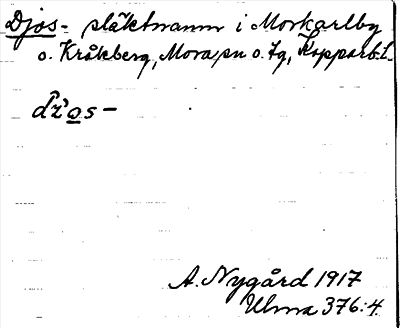 Djos- släktnamn i Morkarlby
o. Kråkberg, Mora sn o. tg, Kopparb. L.
A. Nygård 1917
Ulma 376:4.